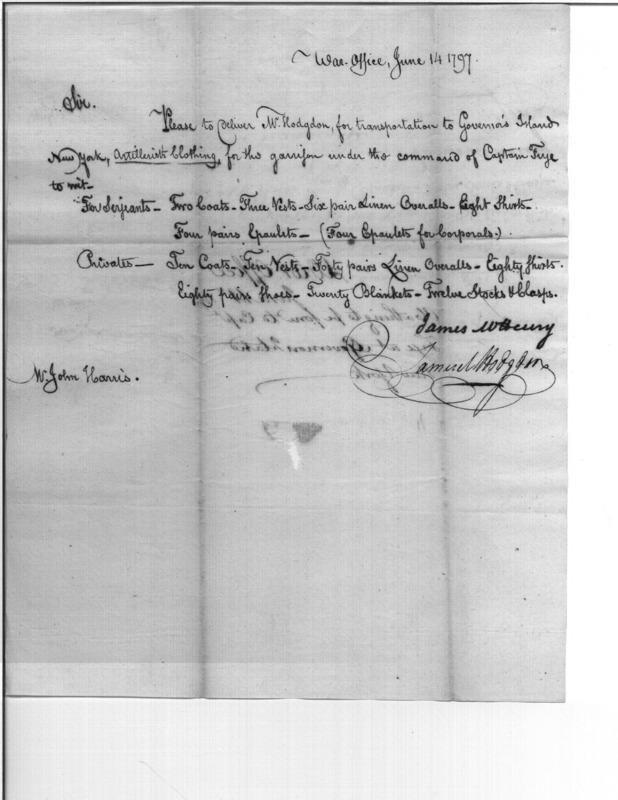 War Office, June 14 1797.
Sir.
Please to Deliver Mr. Hodgdon, for transportation to Governor's Island
New York, Artillerists Clothing, for the garrison under the command of Captain Frye
to wit-
For Serjeants - Two Coats - Three Vests - Six pair Linen Overalls - Eight Shirts -
Four pairs Epaulets - (Four Epaulets for Corporals.)
Privates - Ten Coats - Ten Vests - Forty pairs Linen Overalls - Eighty Shirts.
Eighty pairs Shoes - Twenty Blankets - Twelve Stocks & Clasps.
James McHenry
Samuel Hodgdon
Mr. John Harris.